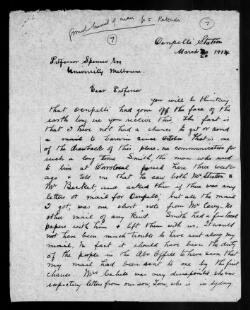 Oenpelli Station
March 20 1914
Professor Spencer Esq
University Melbourne
Dear Professor
you will be thinking
that Oenpelli had gone off the face of the
earth long ere you receive this. The fact is
that I have not had a chance to get or send
a mail to Darwin since
of the drawback of this place, no communication for
such a long time. Smith, the man who used
to live at
ago & told me that he saw both Mr
Mr and asked them if there was any
letters or mail for Oenpelli, but all the mail
I got, was one short note from Mr Carey, no
other mail of any kind. Smith had a few local
papers with him & left them with us. It would
not have been much trouble to have sent along my
mail. In fact it should have been the duty
of the people in the Abo Office to have seen that
my mail had been sent to me by the first
chance. Mrs Cahill was very disappointed she was
expecting letter from our son, Tom, who is in Sydney